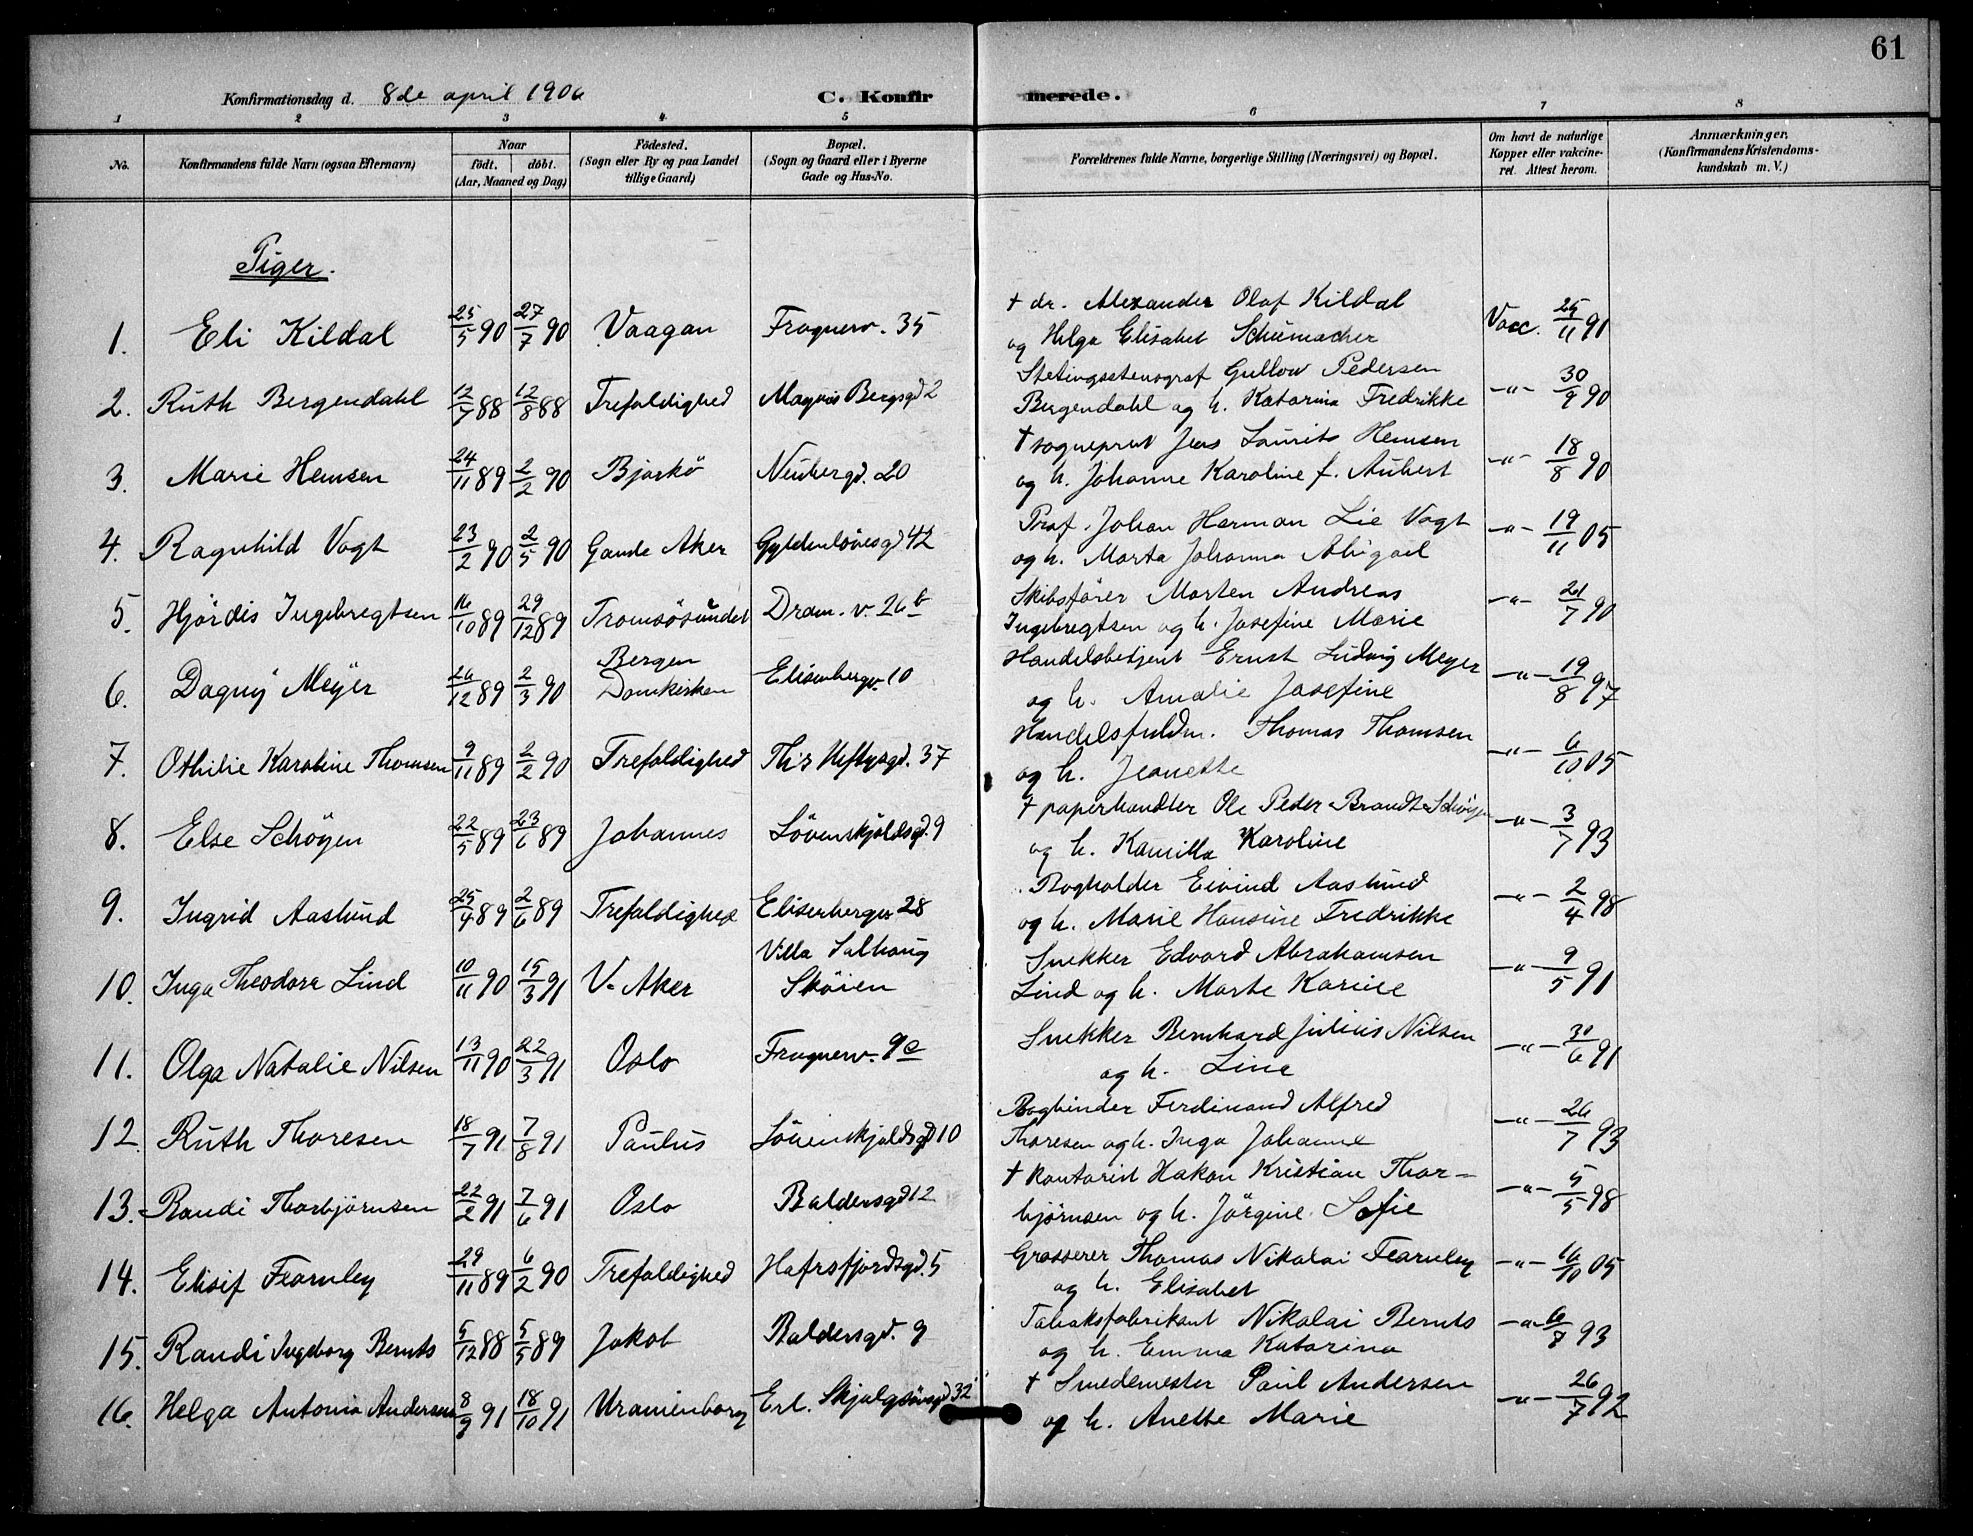 61
Konfirmationsdag d. 8de april 1906 C. Konfirmerede.
1 2 3 4 5 6 7 8
No. Konfirmandens fulde Navn (ogsaa Efternavn) Naar født. døbt. (Aar, Maaned og Dag) Födested. (Sogn eller By og paa Landet tillige Gaard) Bopæl. (Sogn og Gaard eller i Byerne Gade og Hus-No. Forældrenes fulde Navne, borgerlige Stilling (Næringsvei) og Bopæl. Om havt de naturlige Kopper eller vakcineret. Attest herom. Anmærkninger. (Konfirmandens Kristendomskundskab m. V.)
Piger.
1. Eli Kildal 23/5 90 27/7 90 Vaagan Frognerv. 35 † dr. Alexander Olaf Kildal
og Helga Elisabet Schumacher Vacc. 25/11 91
2. Ruth Bergendahl 12/7 88 12/8 88 Trefoldighed Magnus Bergsgd 2 Stetingsstenograf Gullow Pedersen
Bergendahl og h. Katarina Fredrikke -"- 30/9 90
3. Marie Hemsen 24/11 89 2/2 90 Bjarkö Neubergd. 20 † sogneprest Jens Laurits Hemsen
og h. Johanne Karoline f. Aubert -"- 18/8 90
4. Ragnhild Vogt 23/2 90 2/5 90 Gamle Aker Gyldenløvesgd 42 Prof. Johan Herman Lie Vogt
og h. Marta Johanna Abigael -"- 19/11 05
5. Hjördis Ingebregtsen 16/10 89 29/12 89 Tromsösundet Dram. v. 26 b Skibsfører Morten Andreas
Ingebregtsen og h. Josefine Marie -"- 21/7 90
6. Dagny Meyer 26/12 89 2/3 90 Bergen
Domkirken Elisenbergv. 10 Handelsbetjent Ernst Ludvig Meyer
og h. Amalie Josefine -"- 19/8 97
7. Othilie Karoline Thomsen 9/11 89 2/2 90 Trefoldighed Th's Heftysgd. 37 Handelsfuldm. Thomas Thomsen
og h. Jeanette -"- 6/10 05
8. Else Schøyen 22/5 89 23/6 89 Johannes Løvenskjoldsgd. 9 † papirhandler Ole Peder Brandt Schøyen
og h. Kamilla Karoline -"- 3/7 93
9. Ingrid Aaslund 25/4 89 2/6 89 Trefoldighed Elisenbergv 28 Bogholder Eivind Aaslund
og h. Marie Hansine Fredrikke -"- 2/4 98
10. Inga Theodora Lind 10/11 90 15/3 91 V. Aker Villa Solhaug
Skøien Snekker Edvard Abrahamsen
Lind og h. Marte Karine -"- 9/5 91
11. Olga Natalie Nilsen 13/11 90 22/3 91 Oslo Frognerv. 9 c Snekker Bernhard Julius Nilsen
og h. Line -"- 30/6 91
12. Ruth Thoresen 18/7 91 7/8 91 Paulus Løvenskjoldsgd 10 Bogbinder Ferdinand Alfred
Thoresen og h. Inga Johanne -"- 26/7 93
13. Randi Thorbjørnsen 22/2 91 7/6 91 Oslo Baldersgd 12 † kontorist Hakon Kristian Thor-
bjørnsen og h. Jörgine Sofie -"- 5/5 98
14. Elisif Fearnley 29/11 89 6/2 90 Trefoldighed Hafrsfjordsgd. 5 Grosserer Thomas Nikolai Fearnley
og h. Elisabet -"- 16/10 05
15. Randi Ingeborg Bernts 5/12 88 5/5 89 Jakob Baldersgd. 9 Tobaksfabrikant Nikolai Bernts
og h. Emma Katarina -"- 6/7 93
16. Helga Antonia Andersen 8/9 91 18/10 91 Uranienborg Erl. Skjalgsönsgd 32 † Smedemester Paul Andersen
og h. Anette Marie -"- 26/7 92